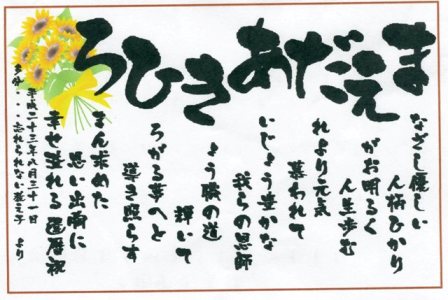 まえだあきひろ
なざし優しい
人柄ひかり
がお明るく
人生歩む
れより元気
慕われて
いじょう豊かな
我らの恩師
ょう職の道
輝いて
ろがる夢へと
導き照らす
まん求めた
思い出胸に
幸せ溢れる還暦祝
平成二十三年八月三十一日
多分・・・忘れられない教え子 より